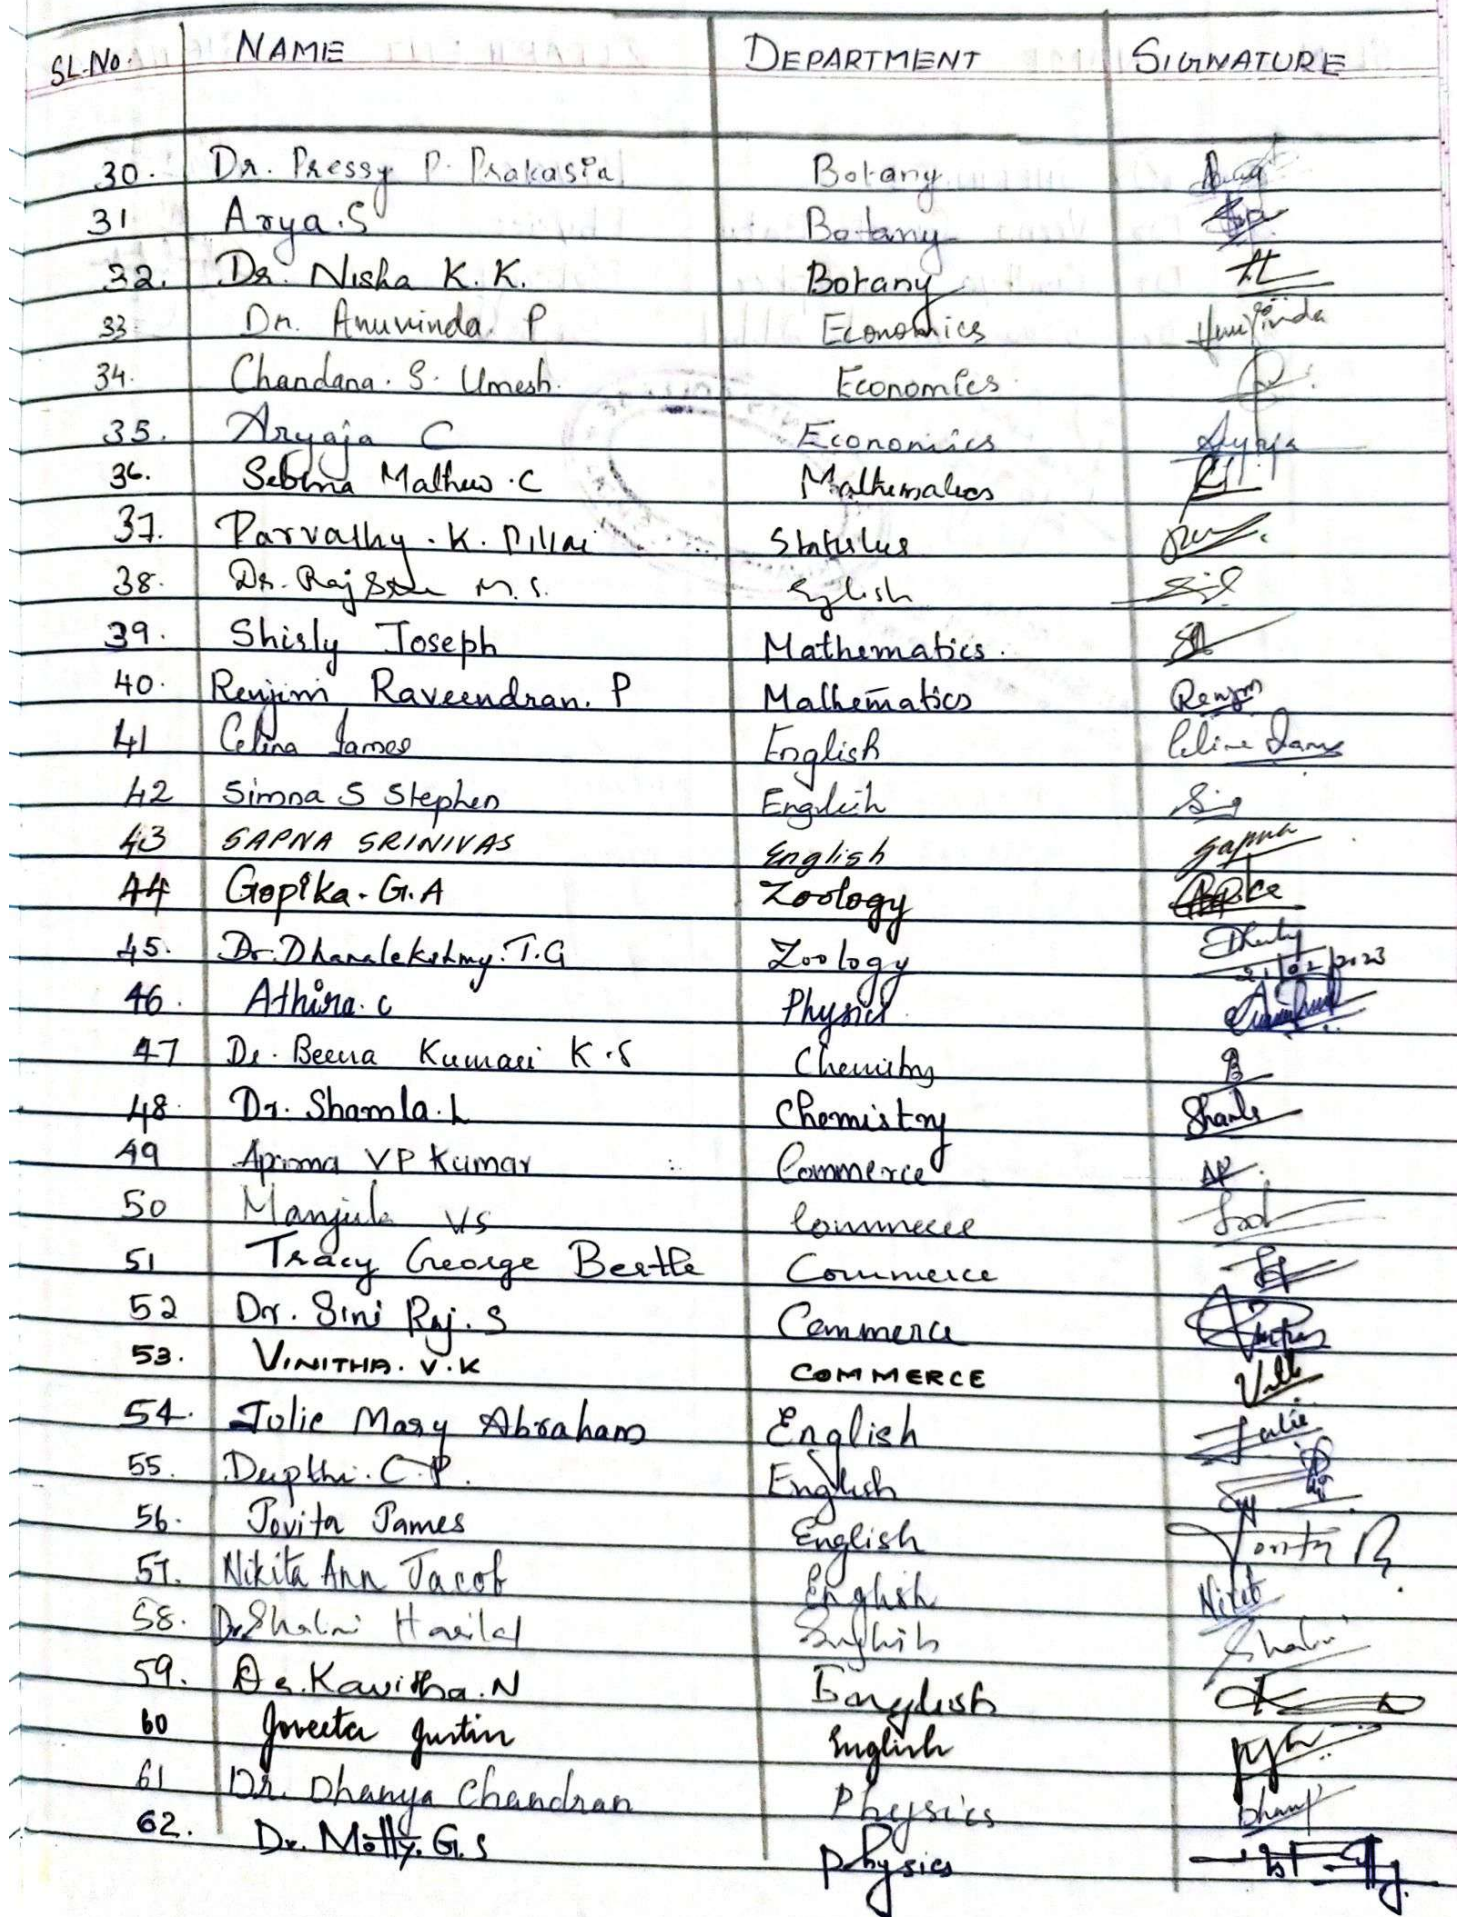 SL.No. NAME DEPARTMENT SIGNATURE
30. Dr. Pressy P. Prakasia Botany
31 Arya.S Botany
32. Dr. Nisha K.K. Botany
33 Dr. Anuvinda P Economics Anuvinda
34. Chandana. S. Umesh. Economics
35. Aryaja C Economics
36. Sebina Mathew.C Mathematics
37. Parvathy.K.Pillai Statistics
38. Dr. M.S. English
39. Shisly Joseph Mathematics.
40. Renjini Raveendran. P Mathematics Renjini
41 Celina James English Celine James
42 Simna S Stephen English
43 SAPNA SRINIVAS English Sapna
44 Gopika.G.A Zoology
45. Dr.Dhanalekshmy.T.G Zoology
21/02/2023
46. Athira.C Physics
47 Dr. Beena Kumari K.S Chemistry B
48. Dr. Shamla.L Chemistry
49 VP Kumar Commerce
50 Manjula VS Commerce
51 Tracy George Commerce
52 Dr. Sini Raj.S Commerce
53. VINITHA.V.K COMMERCE
54. Jolie Mary Abraham English Jolie
55. Deepthi.C.P. English
56. Jovita James English
57. Nikita Ann Jacob English
58. Dr Shalini Harilal English Shalini
59. Dr.Kavitha.N English
60 Joveeta Justin English
61 Dr. Dhanya Chandran Physics
62. Dr. Molly.G.S Physics